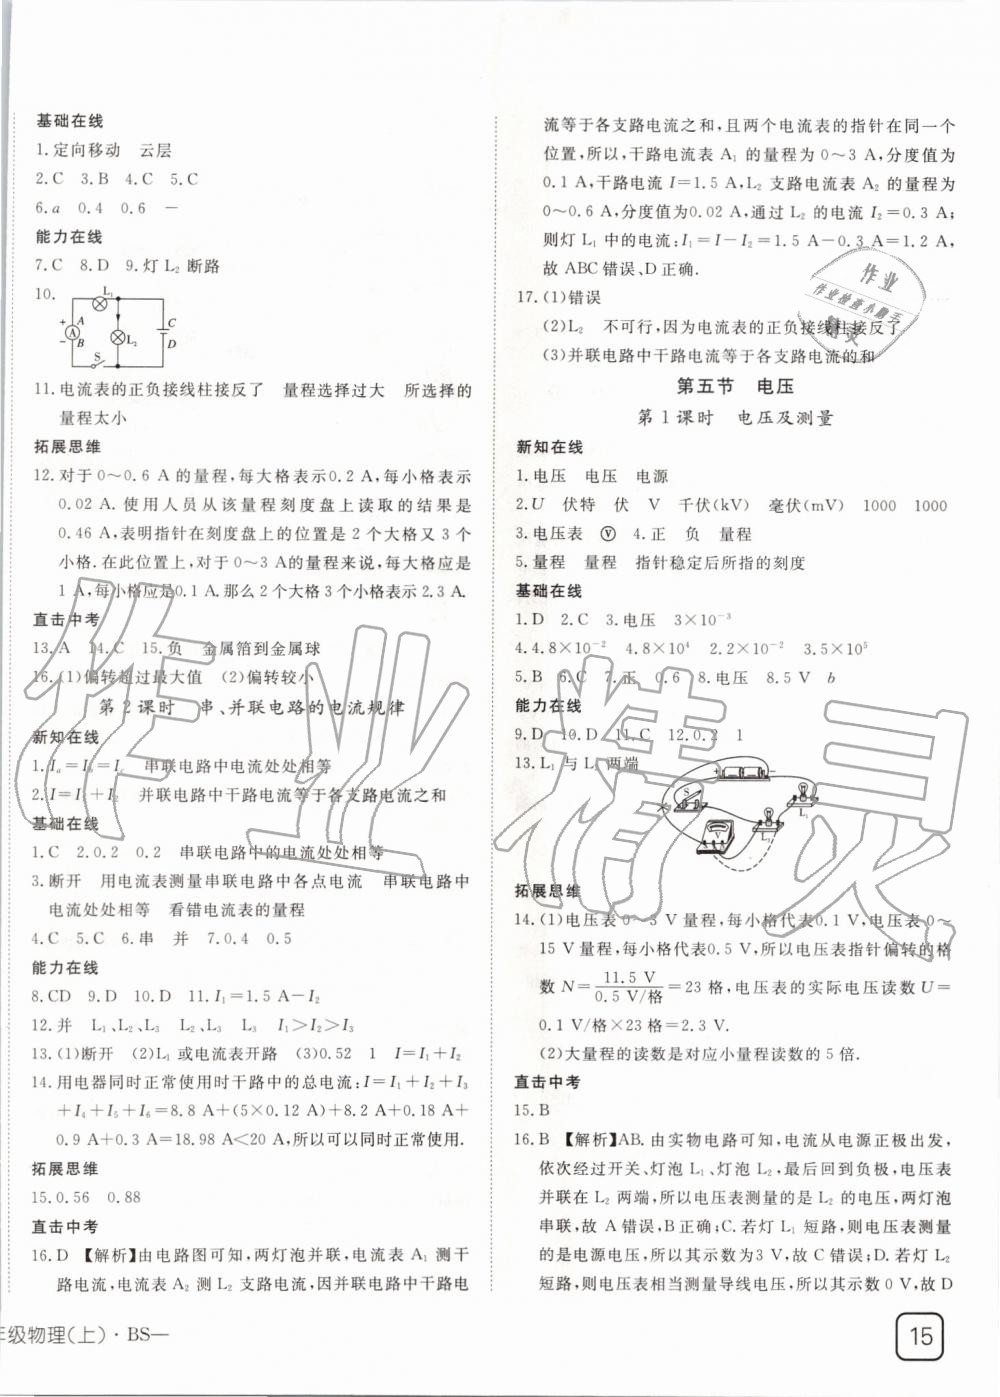 基础在线
1.定向移动 云层
2.C 3.B 4.C 5.C
6.a 0.4 0.6 －
能力在线
7.C 8.D 9.灯 L₂ 断路
10.
L₁
+ A
A
－ B
L₂
C
D
S
11.电流表的正负接线柱接反了 量程选择过大 所选择的
量程太小
拓展思维
12.对于 0～0.6 A 的量程,每大格表示0.2 A,每小格表示
0.02 A. 使用人员从该量程刻度盘上读取的结果是
0.46 A,表明指针在刻度盘上的位置是 2 个大格又 3 个
小格.在此位置上,对于 0～3 A的量程来说,每大格应是
1 A,每小格应是0.1 A.那么 2 个大格 3 个小格应是2.3 A.
直击中考
13.A 14.C 15.负 金属箔到金属球
16.(1)偏转超过最大值 (2)偏转较小
第 2 课时 串、并联电路的电流规律
新知在线
1.Iₐ=I_b=I_c 串联电路中电流处处相等
2.I=I₁+I₂ 并联电路中干路电流等于各支路电流之和
基础在线
1.C 2.0.2 0.2 串联电路中的电流处处相等
3.断开 用电流表测量串联电路中各点电流 串联电路中
电流处处相等 看错电流表的量程
4.C 5.C 6.串 并 7.0.4 0.5
能力在线
8.CD 9.D 10.D 11.I₁=1.5 A－I₂
12.并 L₁、L₂、L₃ L₂、L₃ L₃ I₁>I₂>I₃
13.(1)断开 (2)L₁ 或电流表开路 (3)0.52 1 I=I₁+I₂
14.用电器同时正常使用时干路中的总电流:I=I₁+I₂+I₃
+I₄+I₅+I₆=8.8 A+(5×0.12 A)+8.2 A+0.18 A+
0.9 A+0.3 A=18.98 A<20 A,所以可以同时正常使用.
拓展思维
15.0.56 0.88
直击中考
16.D 【解析】由电路图可知,两灯泡并联,电流表 A₁ 测干
路电流,电流表 A₂ 测 L₂ 支路电流,因并联电路中干路电
流等于各支路电流之和,且两个电流表的指针在同一个
位置,所以,干路电流表 A₁ 的量程为 0～3 A,分度值为
0.1 A,干路电流 I=1.5 A,L₂ 支路电流表 A₂ 的量程为
0～0.6 A,分度值为0.02 A,通过 L₂ 的电流 I₂=0.3 A;
则灯 L₁ 中的电流:I₁=I－I₂=1.5 A－0.3 A=1.2 A,
故 ABC 错误、D 正确.
17.(1)错误
(2)L₂ 不可行,因为电流表的正负接线柱接反了
(3)并联电路中干路电流等于各支路电流的和
第五节 电压
第 1 课时 电压及测量
新知在线
1.电压 电压 电源
2.U 伏特 伏 V 千伏(kV) 毫伏(mV) 1000 1000
3.电压表 Ⓥ 4.正 负 量程
5.量程 量程 指针稳定后所指的刻度
基础在线
1.D 2.C 3.电压 3×10⁻³
4.4.8×10⁻² 4.8×10⁴ 2.2×10⁻² 3.5×10⁵
5.B 6.C 7.正 0.6 8.电压 8.5 V b
能力在线
9.D 10.D 11.C 12.0.2 1
13.L₁ 与 L₂ 两端
+ －
S
V
L₁
L₂
拓展思维
14.(1)电压表 0～3 V 量程,每小格代表0.1 V,电压表 0～
15 V 量程,每小格代表0.5 V,所以电压表指针偏转的格
数 N=11.5 V/0.5 V/格=23 格,电压表的实际电压读数 U=
0.1 V/格×23 格=2.3 V.
(2)大量程的读数是对应小量程读数的 5 倍.
直击中考
15.B
16.B 【解析】AB. 由实物电路可知,电流从电源正极出发,
依次经过开关、灯泡 L₁、灯泡 L₂,最后回到负极,电压表
并联在 L₂ 两端,所以电压表测量的是 L₂ 的电压,两灯泡
串联,故 A 错误,B 正确;C. 若灯 L₁ 短路,则电压表测量
的是电源电压,所以其示数为3 V,故 C 错误;D. 若灯 L₂
短路,则电压表相当测量导线电压,所以其示数 0 V,故 D
级物理(上)·BS—
15
作业
作业检查小助手
精灵
作业精灵